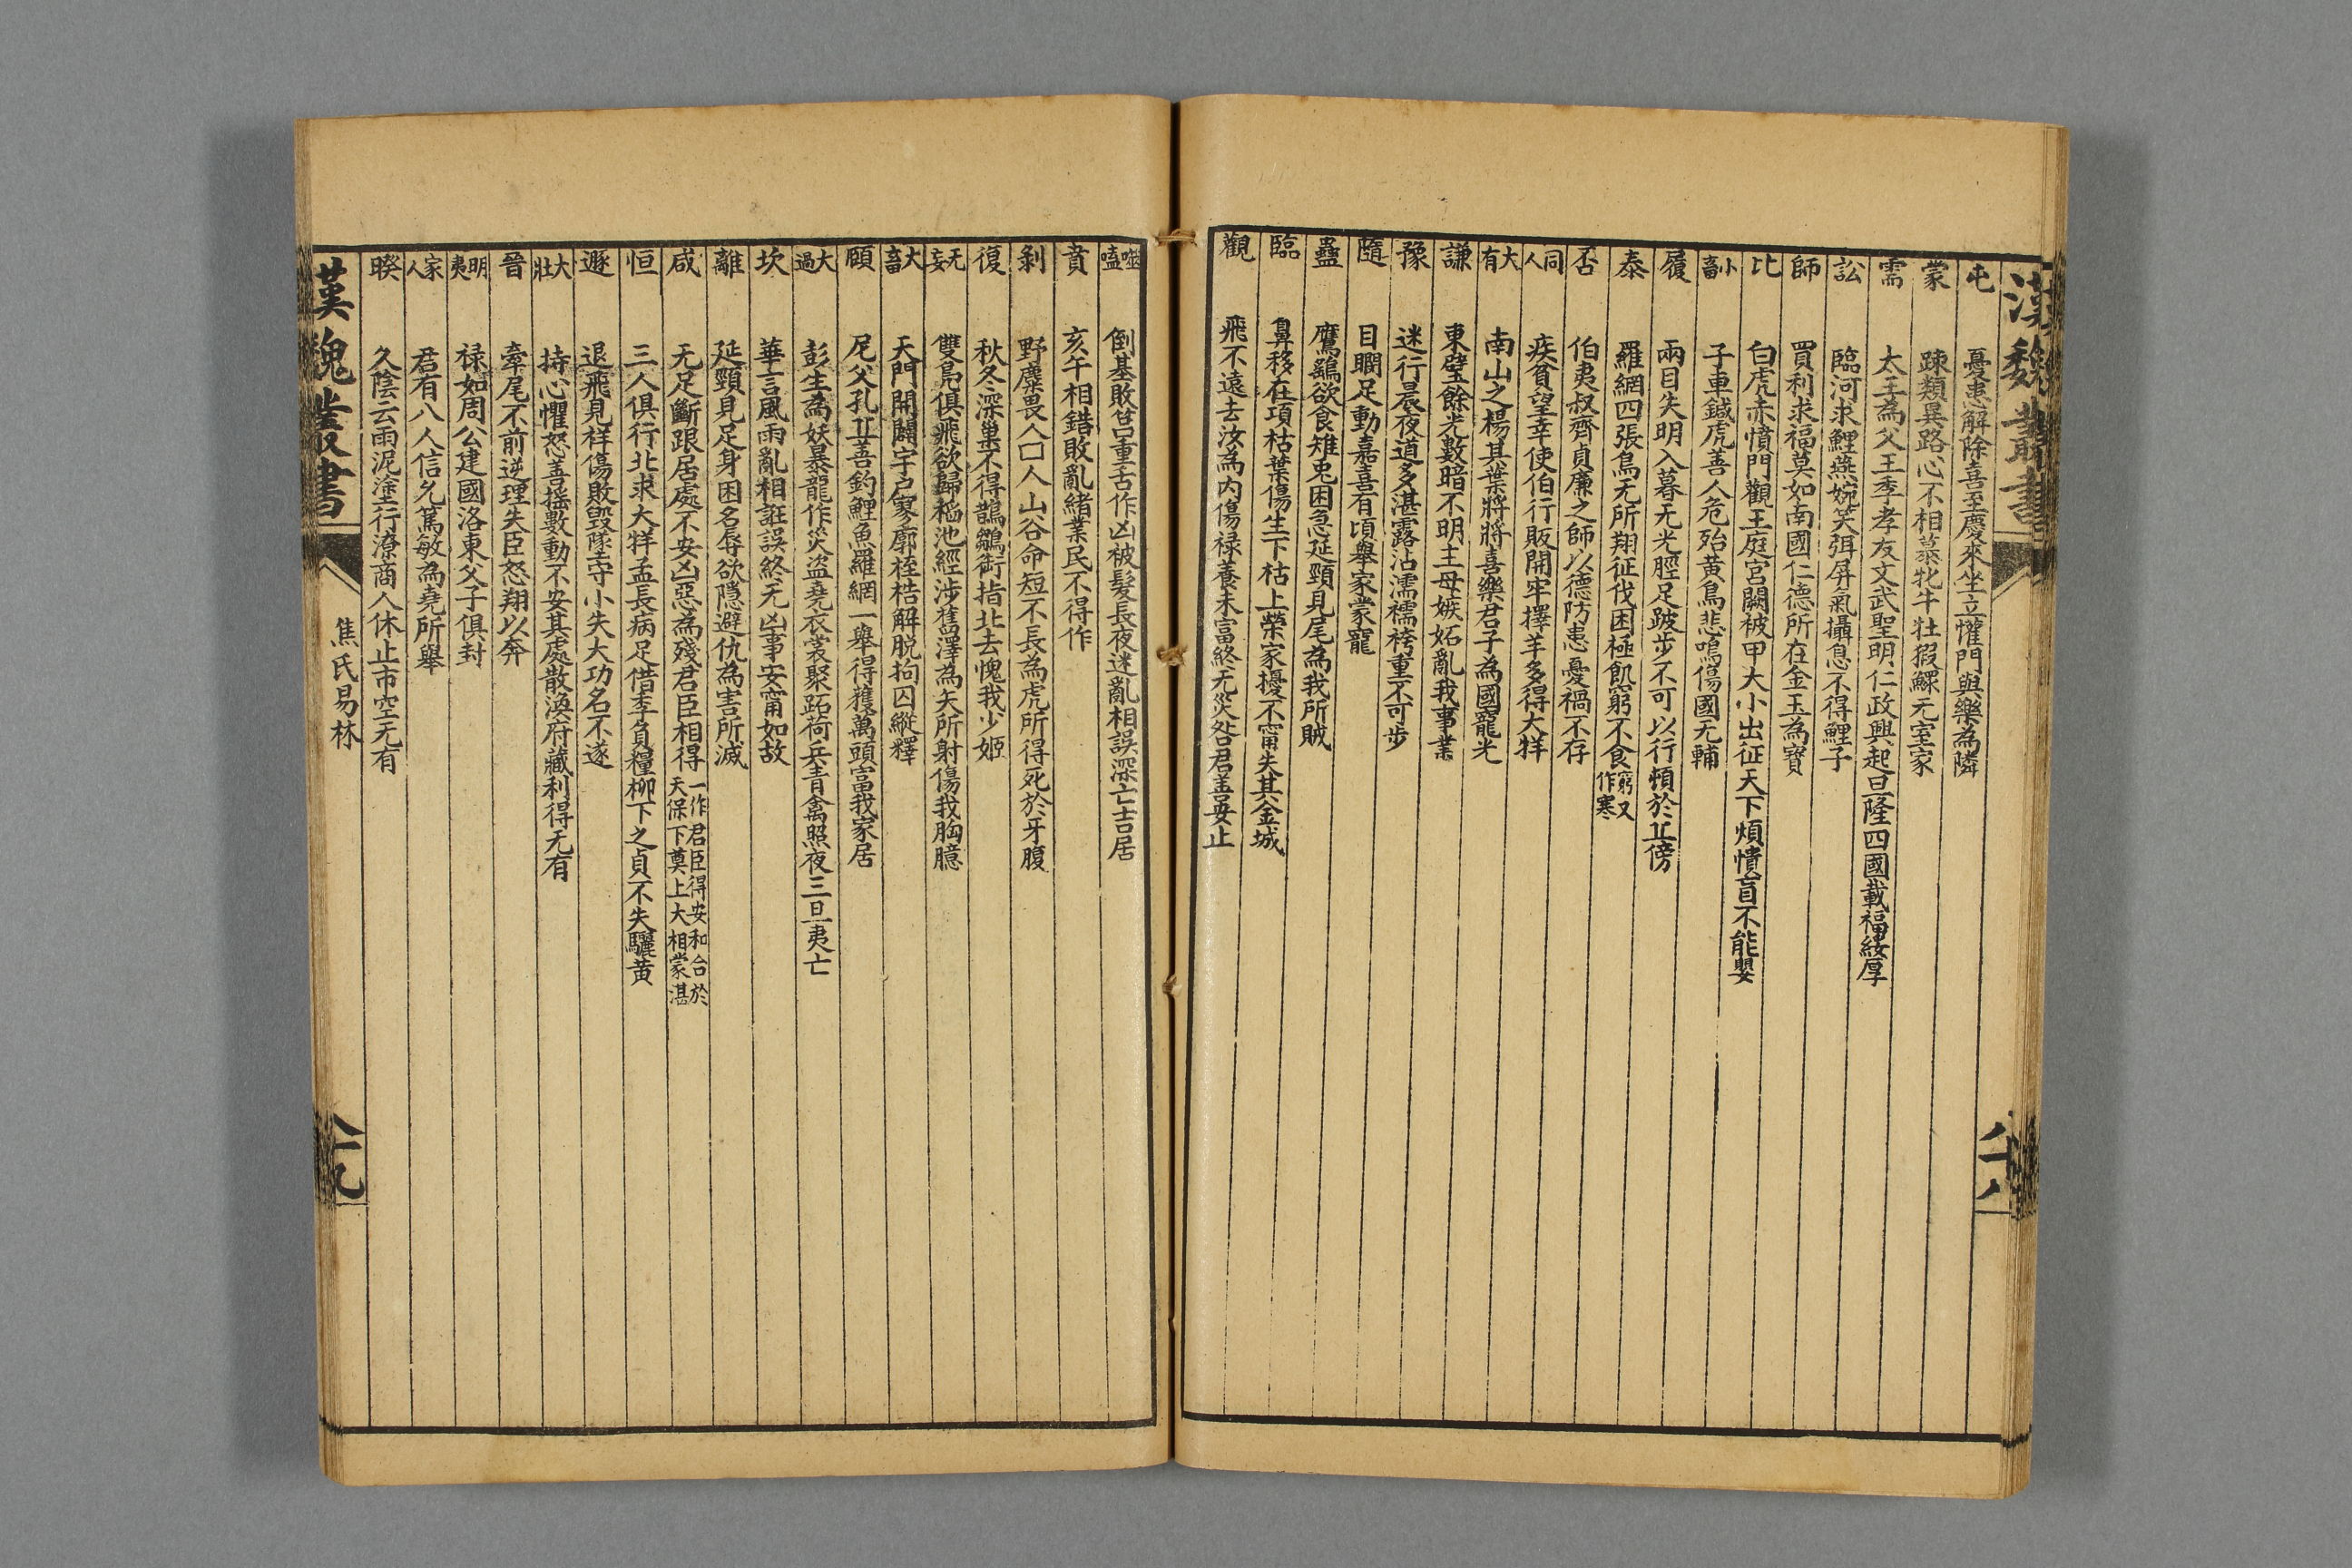 漢魏叢書
屯 憂患解除喜至慶來坐立懽門與樂為隣
蒙 踈類異路心不相慕牝牛牡猳鰥无室家
需 太王為父王季孝友文武聖明仁政興起旦隆四國載福綏厚
訟 臨河求鯉燕婉笑弭屏氣攝息不得鯉子
師 買利求福莫如南國仁德所在金玉為寶
比 白虎赤憤門觀王庭宮闕被甲大小出征天下煩憒盲不能嬰
小畜 子車鍼虎善人危殆黃鳥悲鳴傷國无輔
履 兩目失明入暮无光脛足跛步不可以行頓於丘傍
泰 羅網四張鳥无所翔征伐困極飢窮不食窮又作寒
否 伯夷叔齊貞廉之師以德防患憂禍不存
同人 疾貧望幸使伯行販開牢擇羊多得大牂
大有 南山之楊其葉將將喜樂君子為國寵光
謙 東壁餘光數暗不明主母嫉妬亂我事業
豫 迷行晨夜道多湛露沾濡襦袴重不可步
隨 目瞤足動嘉喜有頃舉家蒙寵
蠱 鷹鷂欲食雉兎困急延頸見尾為我所賊
臨 鼻移在項枯葉傷生下枯上榮家擾不甯失其金城
觀 飛不遠去汝為內傷祿養未富終无災咎君善毋止
八十八
噬嗑 倒基敗筥重舌作凶被髮長夜迷亂相誤深亡吉居
賁 亥午相錯敗亂緒業民不得作
剝 野麋畏人口人山谷命短不長為虎所得死於牙腹
復 秋冬深巢不得鵲鶵銜指北去愧我少姬
无妄 雙鳧俱飛欲歸稻池經涉舊澤為矢所射傷我胸臆
大畜 天門開闢宇戶寥廓桎梏解脫拘囚縱釋
頤 尼父孔丘善釣鯉魚羅網一舉得獲萬頭富我家居
大過 彭生為妖暴龍作災盜堯衣裳聚跖荷兵青禽照夜三旦夷亡
坎 華言風雨亂相誑誤終无凶事安甯如故
離 延頸見足身困名辱欲隱避仇為害所滅
咸 无足斷跟居處不安凶惡為殘君臣相得一作君臣得安和合於天保下奠上大相蒙湛
恒 三人俱行北求大牂孟長病足借季負糧柳下之貞不失驪黃
遯 退飛見祥傷敗毀墜守小失大功名不遂
大壯 持心懼怒善搖數動不安其處散渙府藏利得无有
晉 牽尾不前逆理失臣怒翔以奔
明夷 祿如周公建國洛東父子俱封
家人 君有八人信允篤敏為堯所舉
睽 久陰云雨泥塗行潦商人休止市空无有
漢魏叢書
焦氏易林